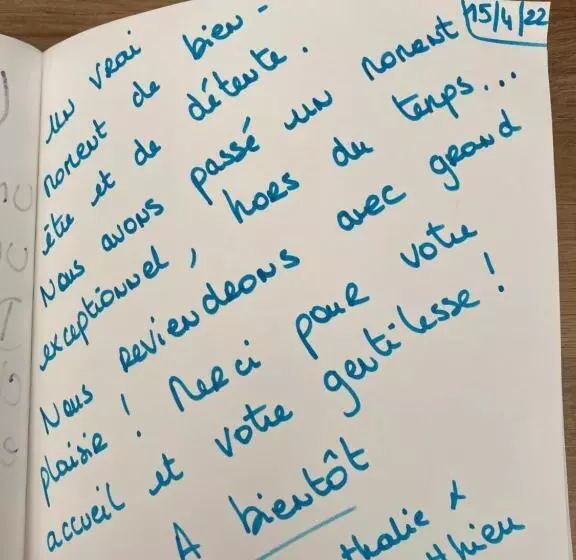 15/4/22
un vrai
moment de bien-
être et de détente.
Nous avons passé un moment
exceptionnel, hors du temps...
Nous reviendrons avec grand
plaisir ! Merci pour votre
accueil et votre gentilesse !
A bientôt